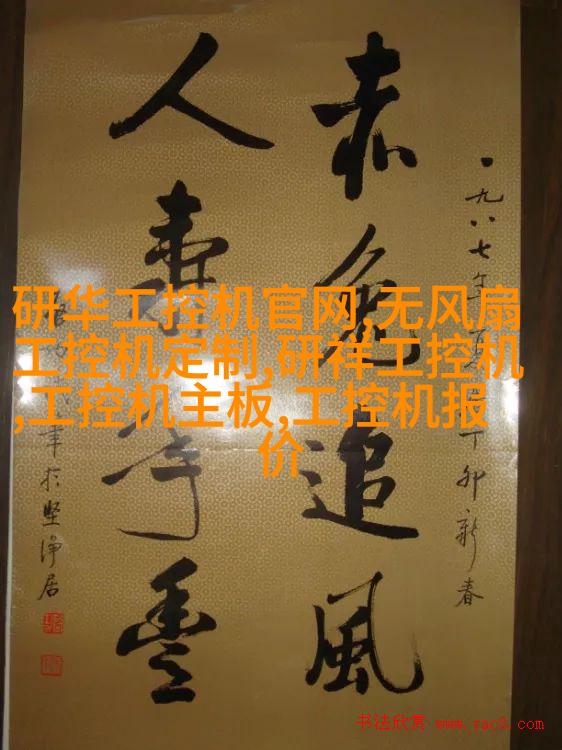 一九八七年丁卯新春
赤兔追風
人壽年豐
年於坚浄居
研华工控机官网,无风扇
工控机定制,研祥工控机
,工控机主板,工控机报
价
书法欣赏 www.yac8.com